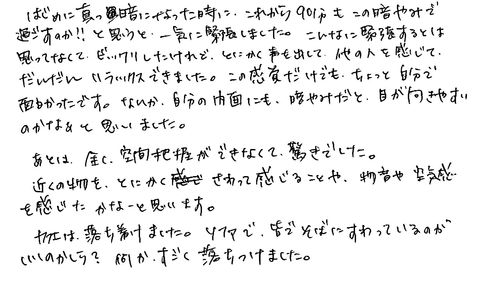 はじめに真っ暗になった時に、これから90分もこの暗やみで
過ごすのか!! と思うと、一気に緊張しました。こんなに緊張するとは
思ってなくて、ビックリしたけれど、とにかく声を出して、他の人を感じて、
だんだんリラックスできました。この感覚だけでも、ちょっと自分で
面白かったです。なんか、自分の内面にも、暗やみだと、目が向きやすい
のかなぁと思いました。
あとは、全く、空間把握ができなくて、驚きでした。
近くの物を、とにかくさわって感じることや、物音や空気感
を感じたかなーと思います。
カフェは、落ち着けました。ソファで、皆でそばにすわっているのが
いいのかしら? 何か、すごく落ちつけました。